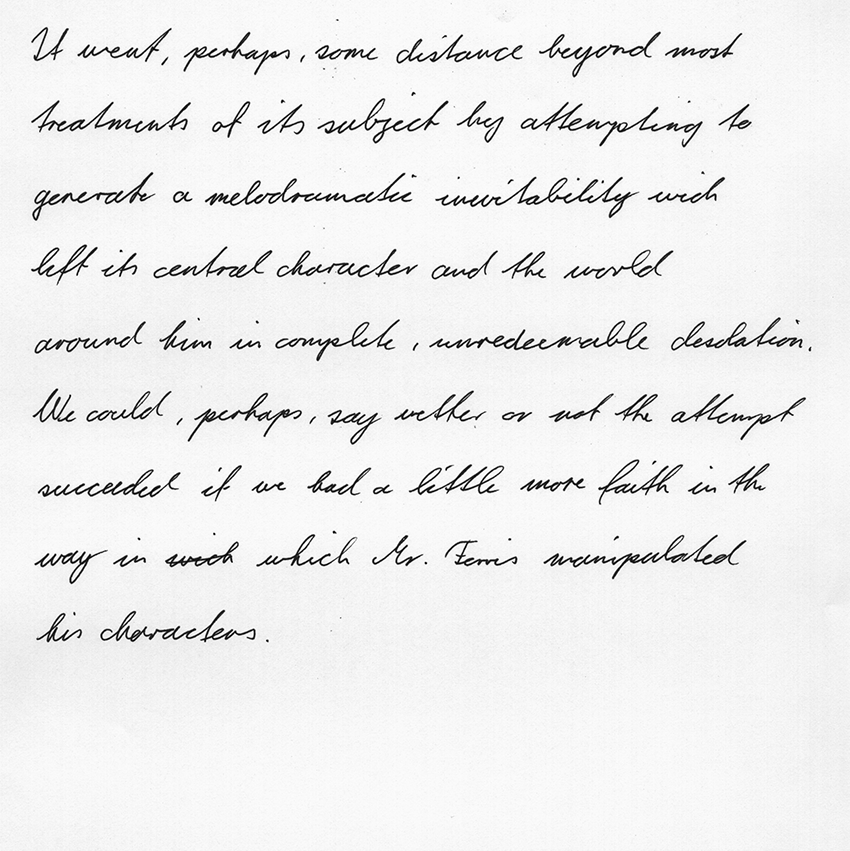 It went, perhaps, some distance beyond most
treatments of its subject by attempting to
generate a melodramatic inevitability wich
left its central character and the world
around him in complete, unredeemable desolation.
We could, perhaps, say wether or not the attempt
succeeded if we had a little more faith in the
way in wich which Mr. Ferris manipulated
his characters.